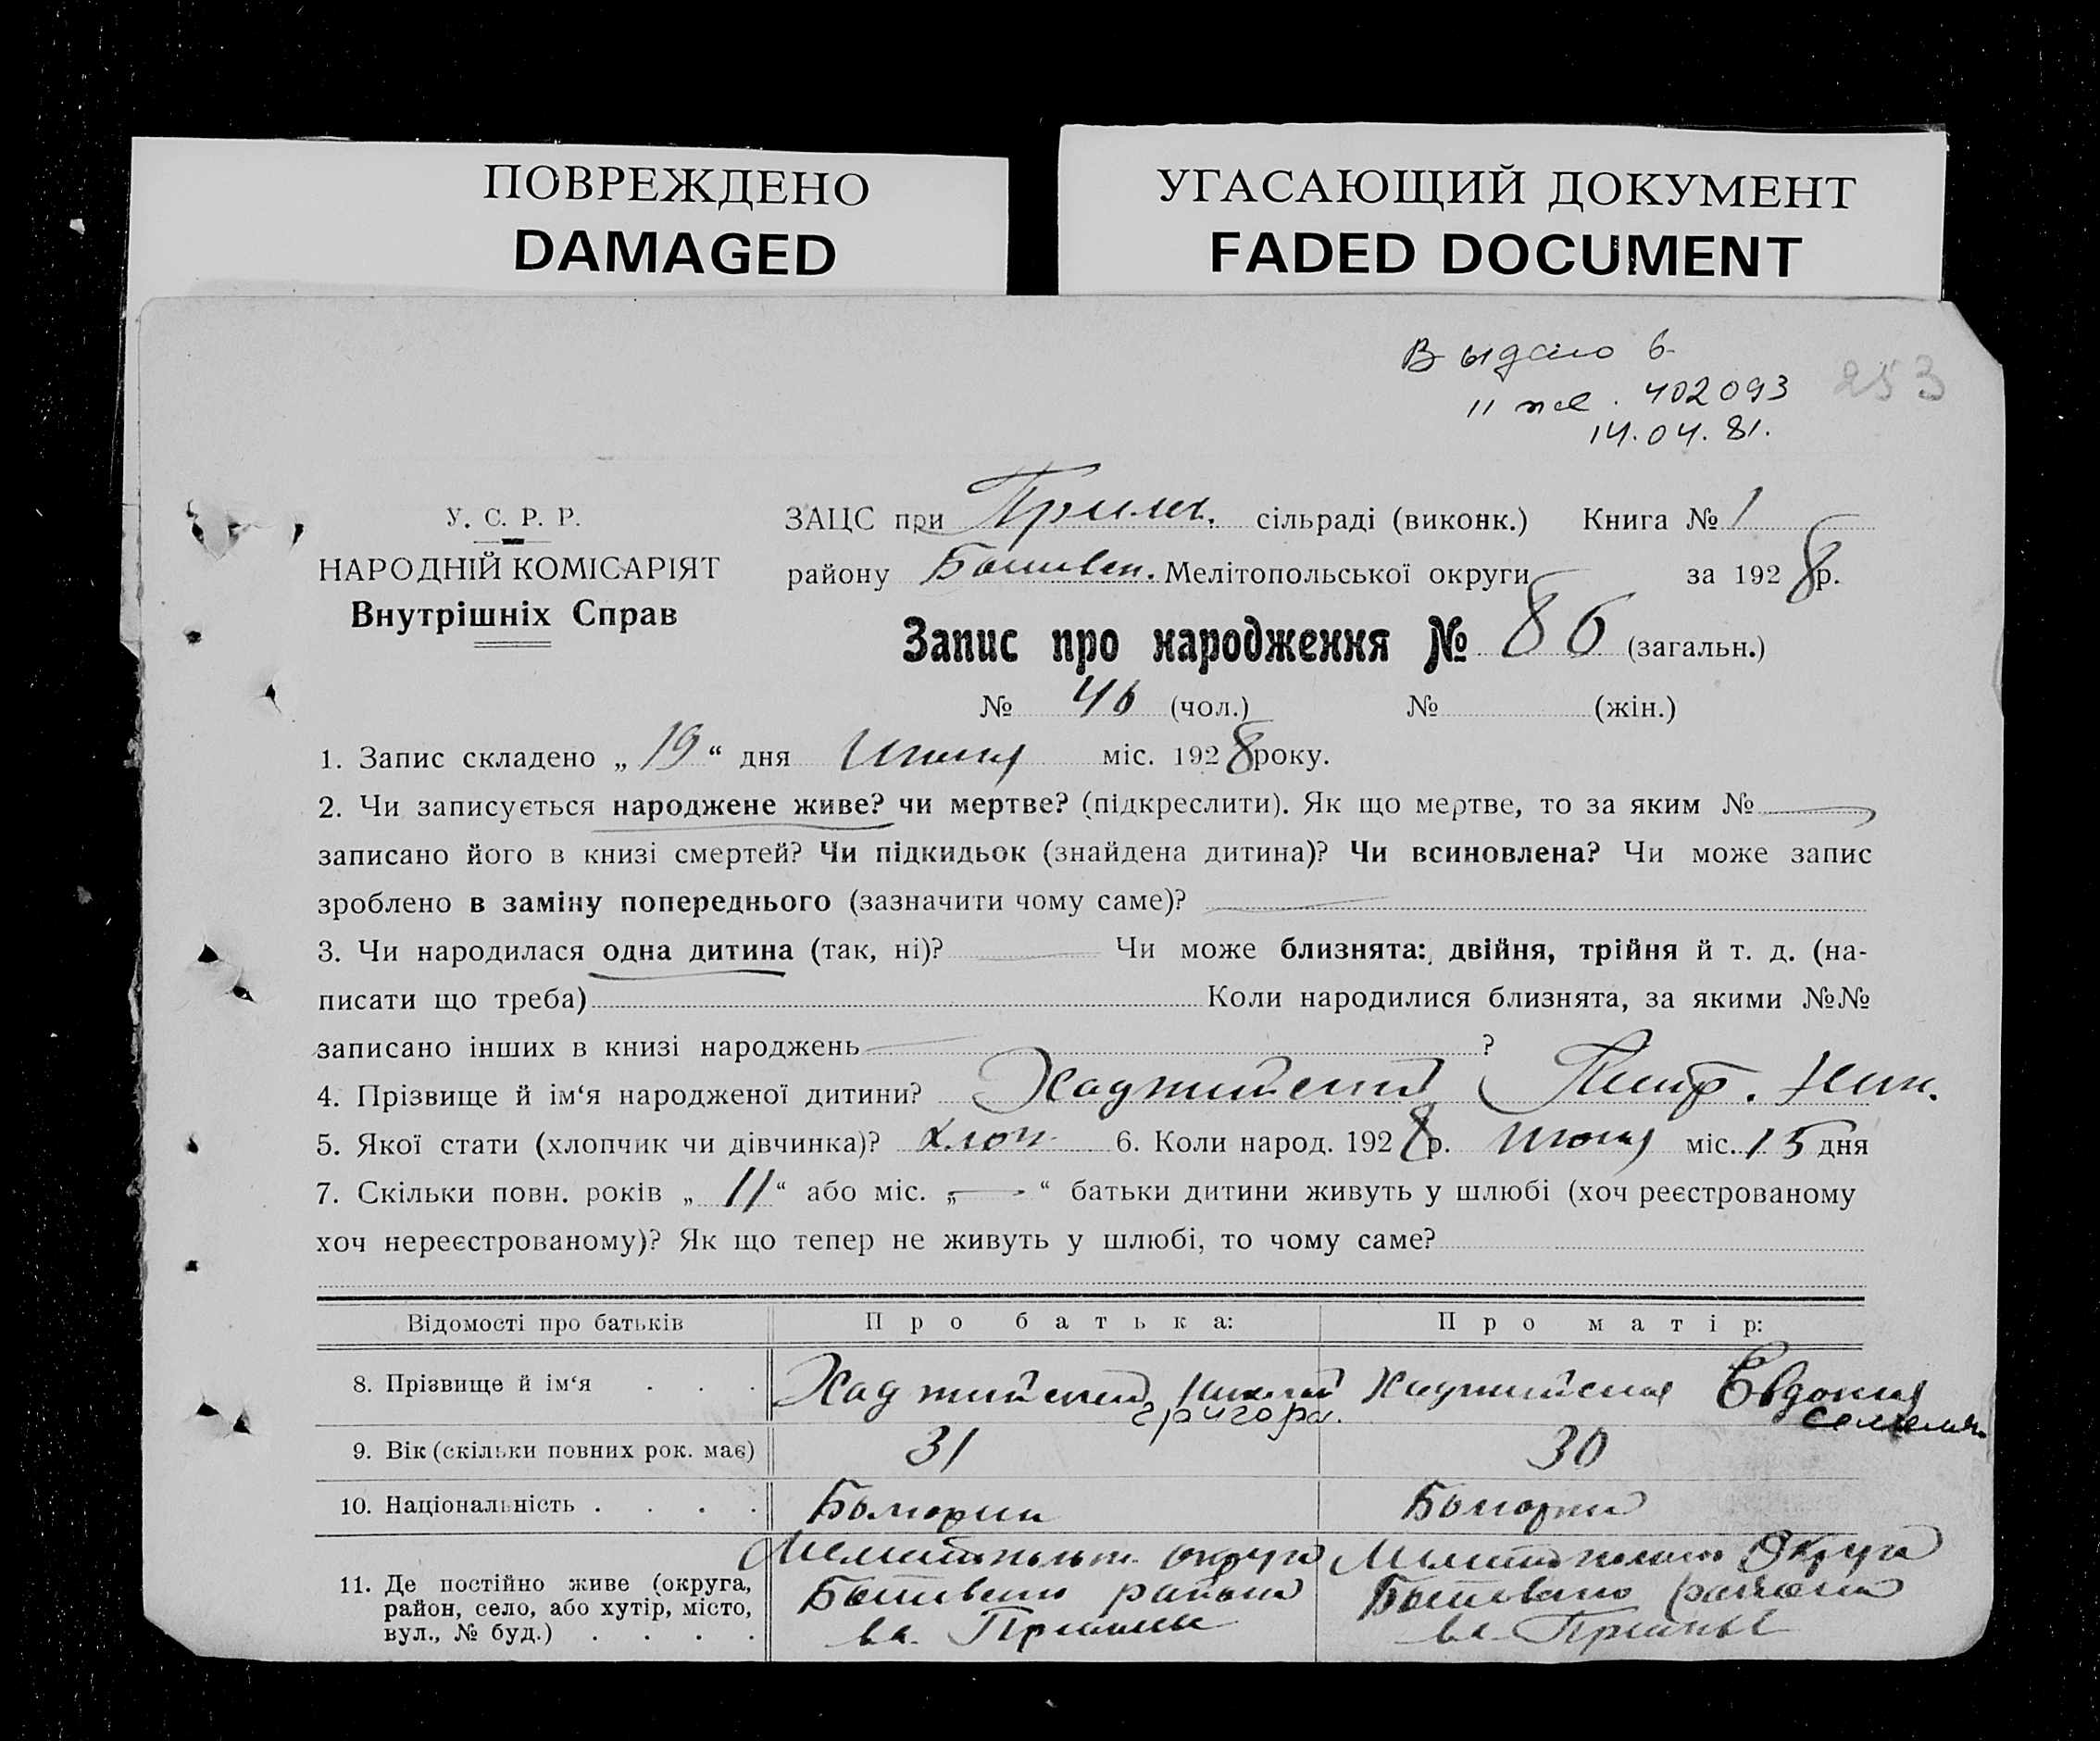 ПОВРЕЖДЕНО
DAMAGED
УГАСАЮЩИЙ ДОКУМЕНТ
FADED DOCUMENT
Выдано
402093 253
14.04.81.
У. С. Р. Р.
НАРОДНІЙ КОМІСАРІЯТ
Внутрішніх Справ
ЗАЦС при сільраді (виконк.) Книга № 1
району Мелітопольської округи за 1928р.
Запис про народження № 86 (загальн.)
№ 46 (чол.) № (жін.)
1. Запис складено „19“ дня міс. 1928 року.
2. Чи записується народжене живе? чи мертве? (підкреслити). Як що мертве, то за яким №
записано його в книзі смертей? Чи підкидьок (знайдена дитина)? Чи всиновлена? Чи може запис
зроблено в заміну попереднього (зазначити чому саме)?
3. Чи народилася одна дитина (так, ні)? Чи може близнята: двійня, трійня й т. д. (на-
писати що треба) Коли народилися близнята, за якими №№
записано інших в книзі народжень ?
4. Прізвище й ім‘я народженої дитини? Хаджийский
5. Якої стати (хлопчик чи дівчинка)? хлоп. 6. Коли народ. 1928р. июня міс. 15 дня
7. Скільки повн. років „11“ або міс. „—“ батьки дитини живуть у шлюбі (хоч реєстрованому
хоч нереєстрованому)? Як що тепер не живуть у шлюбі, то чому саме?
Відомості про батьків Про батька: Про матір:
8. Прізвище й ім‘я . . . Хаджийский Николай Хаджийская Евдокия
григорь.
9. Вік (скільки повних рок. має) 31 30
10. Національність . . . .
11. Де постійно живе (округа,
район, село, або хутір, місто,
вул., № буд.) . . . .
округа Округа
района района